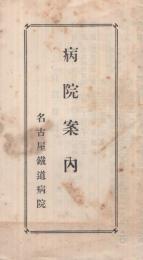 病院案內
名古屋鐵道病院